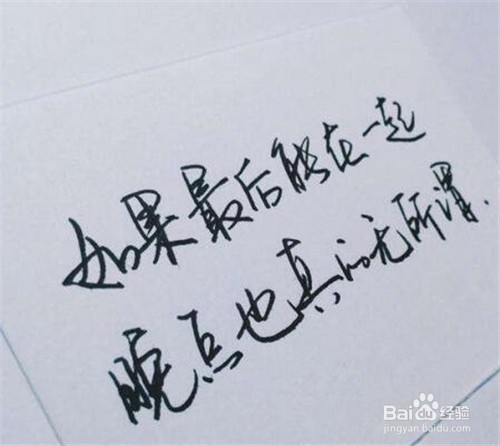 如果最后能在一起
晚点也真的无所谓.
Baidu经验
jingyan.baidu.com